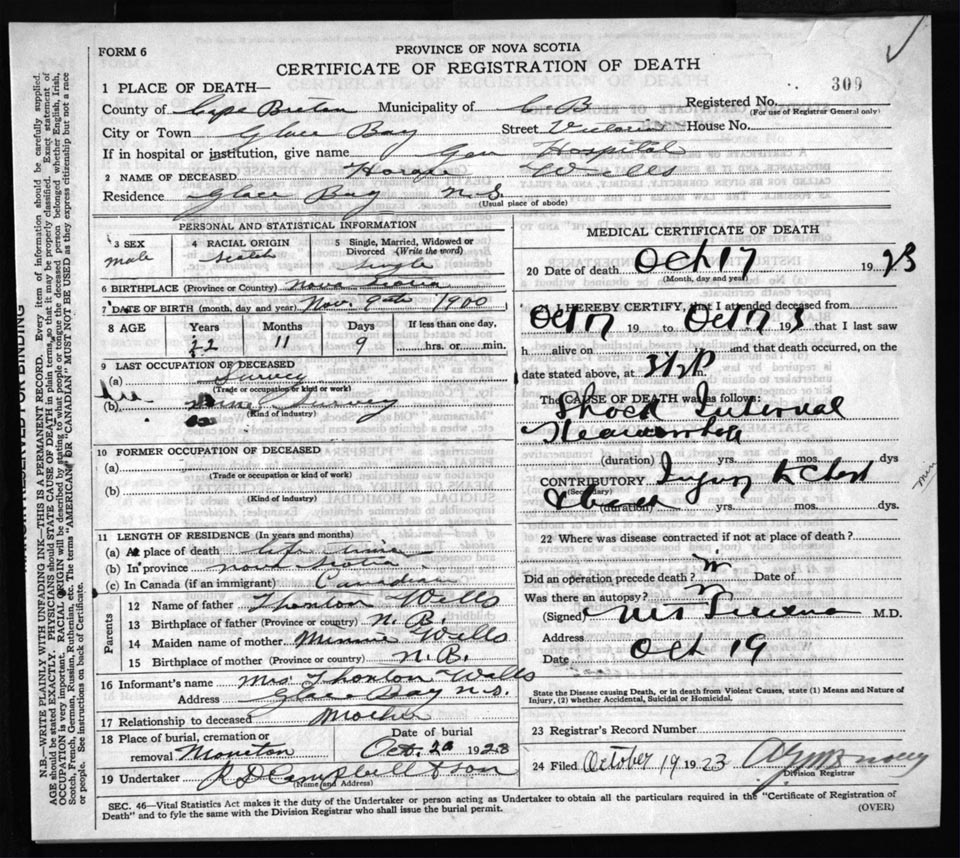 FORM 6
PROVINCE OF NOVA SCOTIA
CERTIFICATE OF REGISTRATION OF DEATH
309
1 PLACE OF DEATH—
County of Cape Breton Municipality of C. B. Registered No.
(For use of Registrar General only)
City or Town Glace Bay Street Victoria House No.
If in hospital or institution, give name Gen Hospital
2 NAME OF DECEASED Horace Wells
Residence Glace Bay N.S.
(Usual place of abode)
PERSONAL AND STATISTICAL INFORMATION
3 SEX
male
4 RACIAL ORIGIN
Scotch
5 Single, Married, Widowed or Divorced (Write the word)
Single
6 BIRTHPLACE (Province or Country) Nova Scotia
7 DATE OF BIRTH (month, day and year) Nov. 9th 1900
8 AGE Years Months Days If less than one day,
22 11 9 hrs. or min.
9 LAST OCCUPATION OF DECEASED
(a) Survey
(Trade or occupation or kind of work)
(b) Mine Survey
(Kind of industry)
10 FORMER OCCUPATION OF DECEASED
(a)
(Trade or occupation or kind of work)
(b)
(Kind of industry)
11 LENGTH OF RESIDENCE (In years and months)
(a) At place of death life time
(b) In province Nova Scotia
(c) In Canada (if an immigrant) Canadian
Parents
12 Name of father Thonton Wells
13 Birthplace of father (Province or country) N. B.
14 Maiden name of mother Minnie Wells
15 Birthplace of mother (Province or country) N. B.
16 Informant's name Mrs. Thonton Wells
Address Glace Bay N.S.
17 Relationship to deceased Mother
18 Place of burial, cremation or removal Moncton
Date of burial
Oct. 20 1923
19 Undertaker Campbell & Son
(Name and Address)
MEDICAL CERTIFICATE OF DEATH
20 Date of death Oct 17 1923
(Month, day and year)
I HEREBY CERTIFY, that I attended deceased from
Oct 17 19 to Oct 17 3 that I last saw
h alive on and that death occurred, on the
date stated above, at P
The CAUSE OF DEATH was as follows:
Shock Internal
(duration) yrs. mos. dys
CONTRIBUTORY Injury to Chest
(Secondary)
(duration) yrs. mos. dys.
22 Where was disease contracted if not at place of death?
Did an operation precede death? Date of
Was there an autopsy?
(Signed) M.D.
Address
Date Oct 19
State the Disease causing Death, or in death from Violent Causes, state (1) Means and Nature of
Injury, (2) whether Accidental, Suicidal or Homicidal.
23 Registrar's Record Number
24 Filed October 19 1923
Division Registrar
SEC. 46—Vital Statistics Act makes it the duty of the Undertaker or person acting as Undertaker to obtain all the particulars required in the "Certificate of Registration of
Death" and to fyle the same with the Division Registrar who shall issue the burial permit.
(OVER)
RESERVED FOR BINDING
N.B.—WRITE PLAINLY WITH UNFADING INK—THIS IS A PERMANENT RECORD. Every item of information should be carefully supplied.
AGE should be stated EXACTLY. PHYSICIANS should STATE CAUSE OF DEATH in plain terms, so that it may be properly classified. Exact statement of
OCCUPATION is very important. RACIAL ORIGIN will be described by stating to what people or tongue the deceased person belonged, whether English, Irish,
Scotch, French, German, Russian, Ruthenian, etc. The terms "AMERICAN" OR "CANADIAN" MUST NOT BE USED as they express citizenship but not a race
or people. See instructions on back of Certificate.